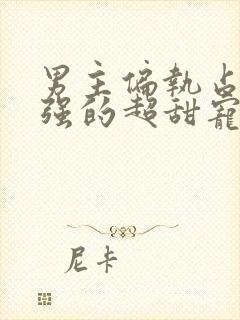 男主偏执占
强的超甜宠
尼卡